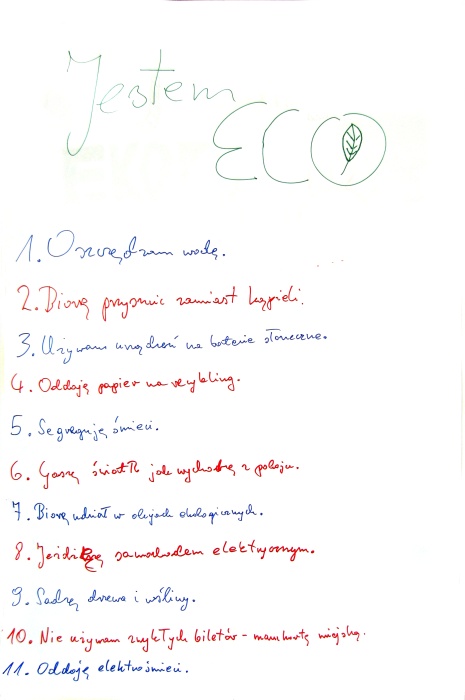 Jestem
ECO
1. Oszczędzam wodę.
2. Biorę prysznic zamiast kąpieli.
3. Używam urządzeń na baterie słoneczne.
4. Oddaję papier na recykling.
5. Segreguję śmieci.
6. Gaszę światło jak wychodzę z pokoju.
7. Biorę udział w akcjach ekologicznych.
8. Jeżdżę samochodem elektrycznym.
9. Sadzę drzewa i rośliny.
10. Nie używam zwykłych biletów - mam kartę miejską.
11. Oddaję elektrośmieci.